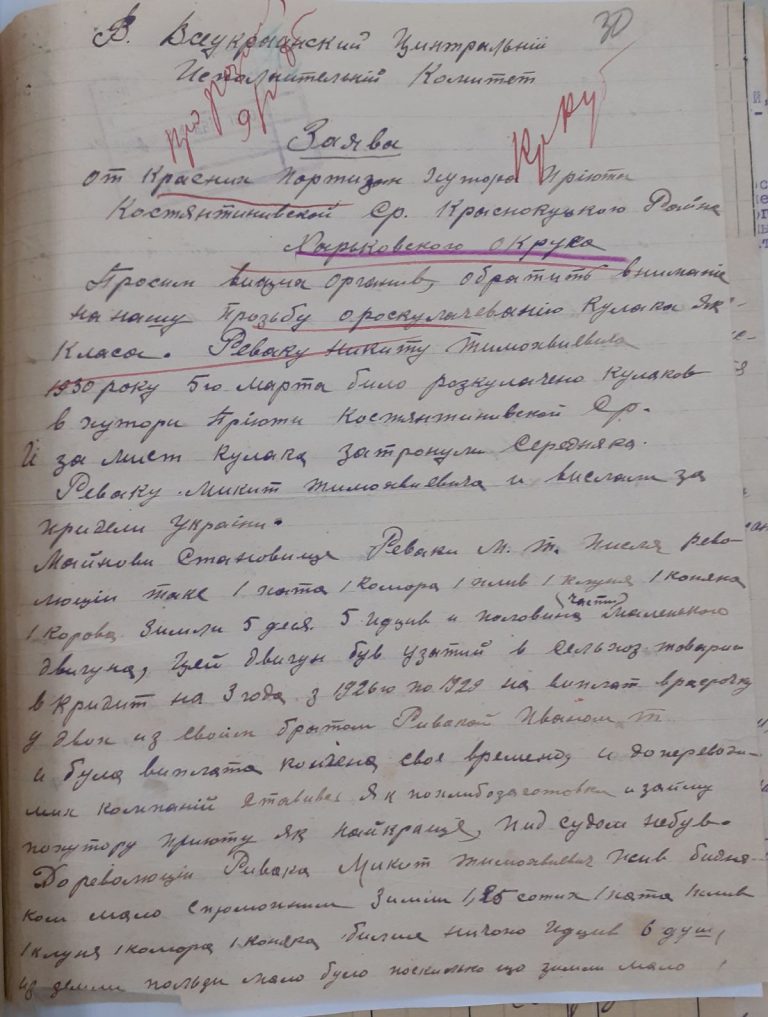 30
В. Всеукраінский Цинтральній
Исполнительній Комитет
Заява
от Красних Портизан Хутора Пріюти
Костянтинивской Ср. Краснокуцького Района
Харьковского округа
Просим висша органив, обратить вниманіе
на нашу прозьбу о роскулачеванію кулака як
класа. Реваку Никиту Тимохвиевича
1930 року 5го марта било розкулачено куляков
в хутори Пріюти Костянтинивской Ср.
И за мист кулака затронули Середняка.
Реваку Микит Тимохвиевича и вислали за
причели україни.
Майнови Становище Реваки М. Т. писля рево-
люціи таке 1 хата 1 комора 1 хлив 1 клуня 1 коняка
1 корова. Зимли 5 дися. 5 идцив и половина части маленького
двигуна, цей двигун був узятий в Сельхоз товарис
в кридит на 3 года з 1926го по 1929 на виплат в расрочку
у двох из своім братом Ривакой Иваном Т.
и була виплата кончена свое временно, и до перевоже-
мих компаній ставився як по хлибозаготовки и займу
по хутору пріюту як найкраще, пид судом небув.
До революціи Ривака Микит Тимохвиевич жив бидня-
ком мало спроможним Зимли 1,25 сотих 1 хата 1 хлив
1 клуня 1 комора 1 коняка билше ничого идцив 6 душ,
из земли пользи мало було поскилько що зимли мало